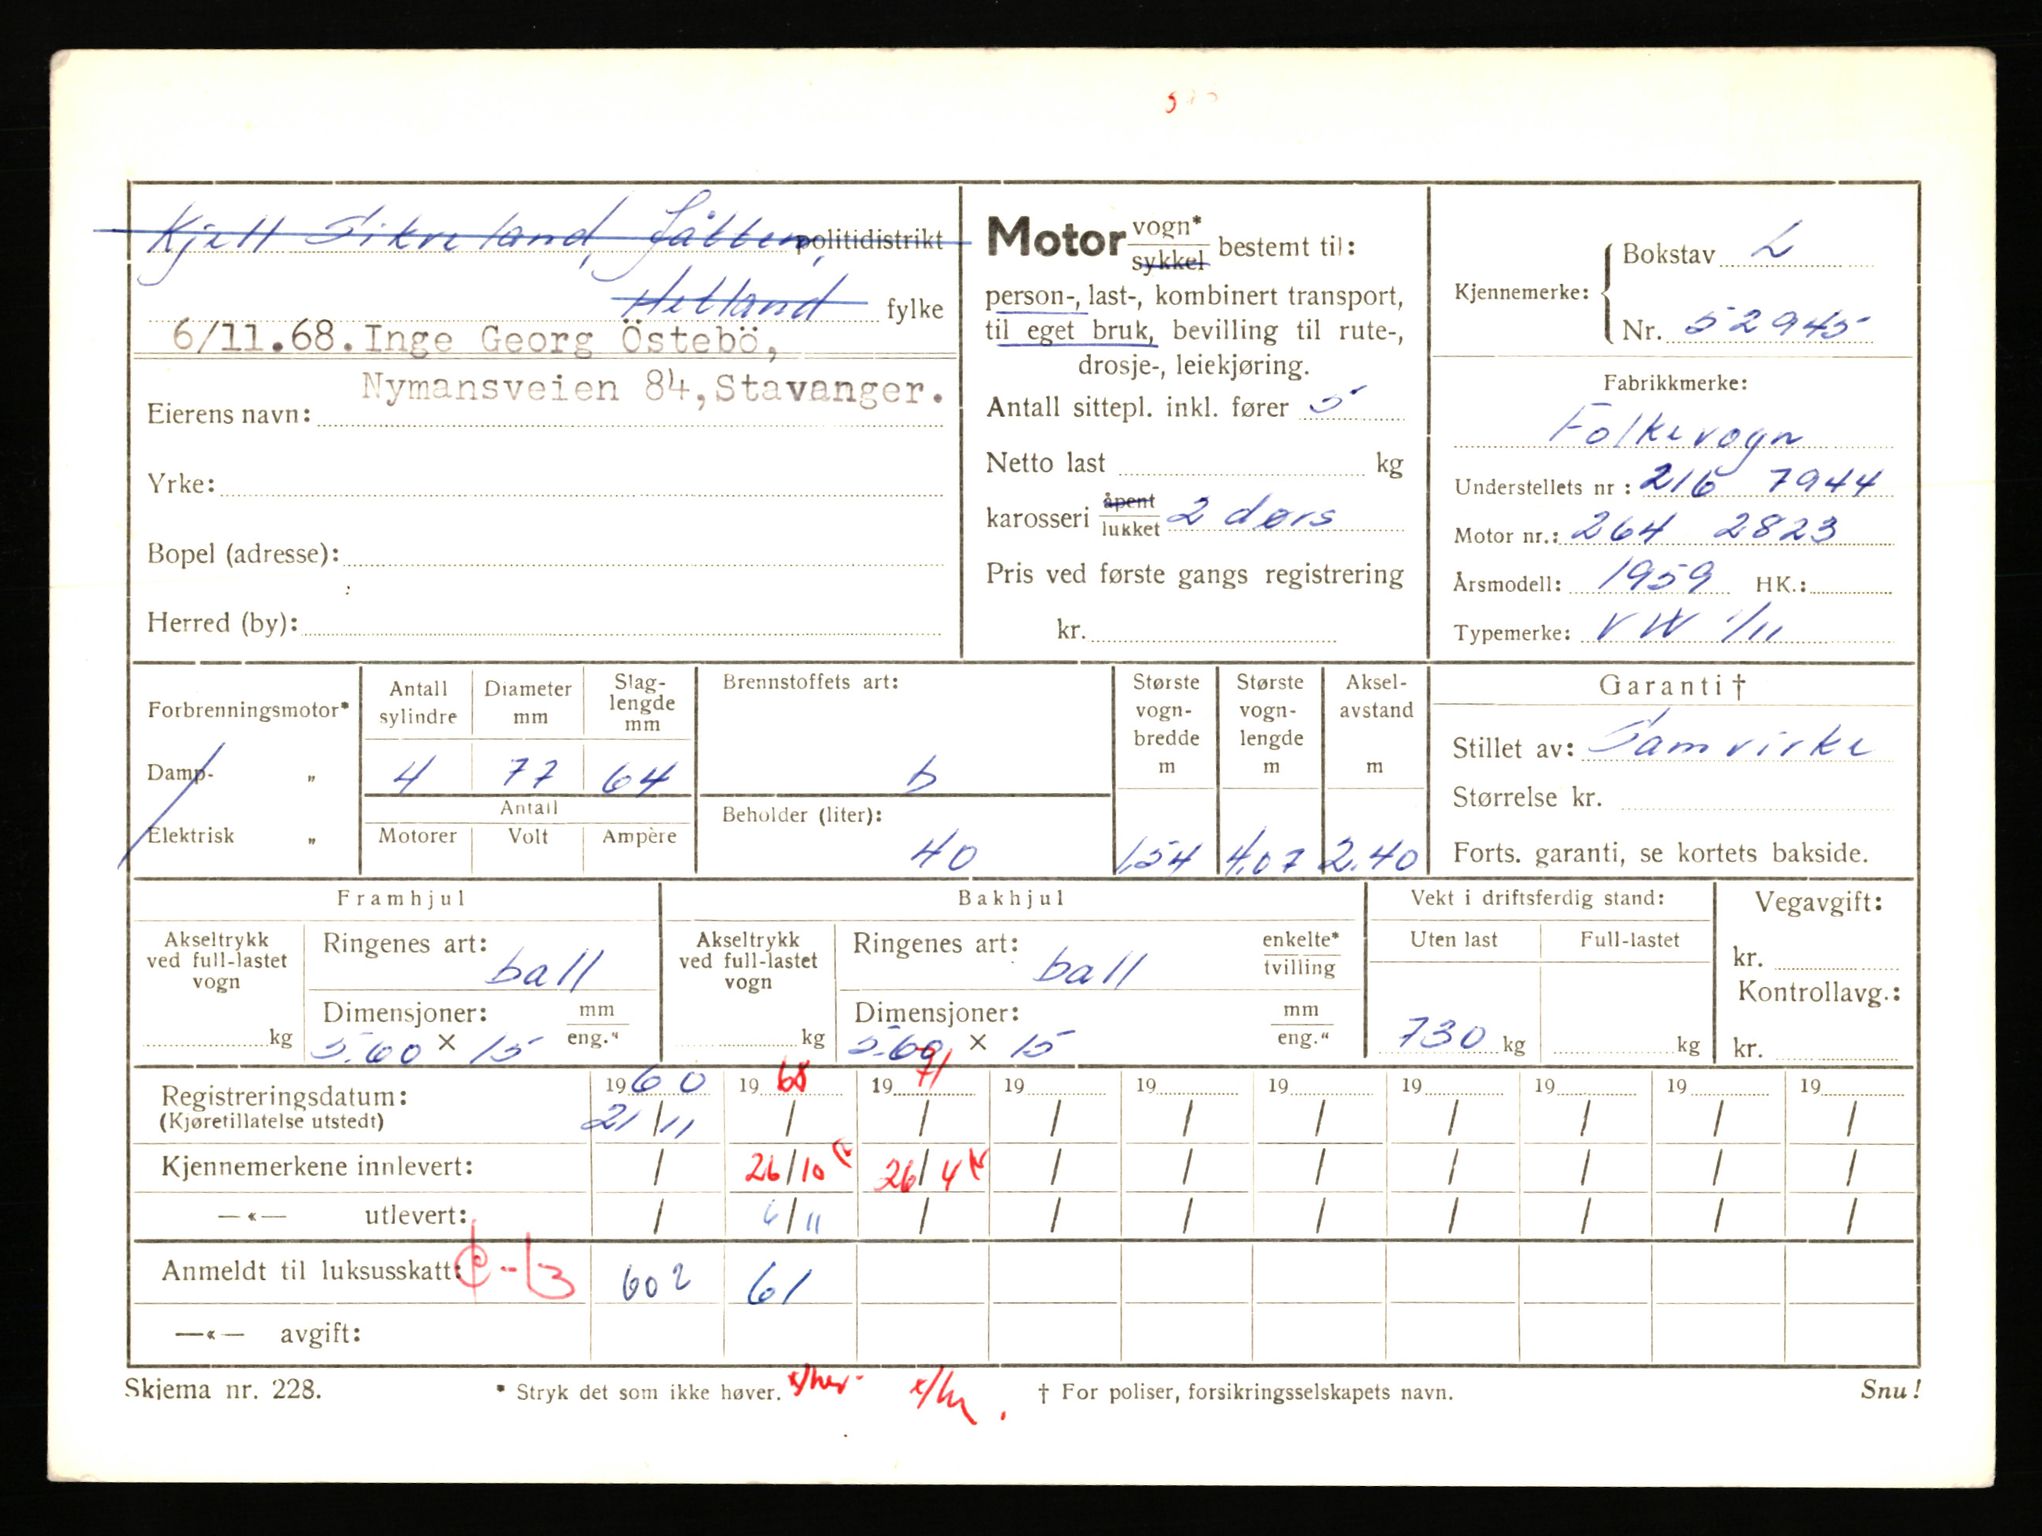 Kjell Sikveland, Jåtten, politidistrikt
Hetland fylke
6/11.68. Inge Georg Östebö,
Nymansveien 84, Stavanger.
Eierens navn:
Yrke:
Bopel (adresse):
Herred (by):
Motor vogn* sykkel bestemt til:
person-, last-, kombinert transport,
til eget bruk, bevilling til rute-,
drosje-, leiekjøring.
Antall sittepl. inkl. fører 5
Netto last kg
karosseri åpent lukket 2 dørs
Pris ved første gangs registrering
kr.
Kjennemerke: Bokstav L
Nr. 52945
Fabrikkmerke:
Folkevogn
Understellets nr : 216 7944
Motor nr.: 264 2823
Årsmodell: 1959 HK.:
Typemerke: VW 1/11
Forbrenningsmotor*
Damp- „
Elektrisk „
Antall sylindre Diameter mm Slag-lengde mm
4 77 64
Antall
Motorer Volt Ampère
Brennstoffets art:
b
Beholder (liter):
40
Største vogn-bredde m Største vogn-lengde m Aksel-avstand m
1,54 4.07 2.40
Garanti †
Stillet av: Samvirke
Størrelse kr.
Forts. garanti, se kortets bakside.
Framhjul
Akseltrykk ved full-lastet vogn kg
Ringenes art: ball
Dimensjoner: mm eng."
5.60 × 15
Bakhjul
Akseltrykk ved full-lastet vogn kg
Ringenes art: ball enkelte* tvilling
Dimensjoner: mm eng."
5.60 × 15
Vekt i driftsferdig stand:
Uten last Full-lastet
730 kg kg
Vegavgift:
kr.
Kontrollavg.:
kr.
Registreringsdatum: 1960 1968 1971 19 19 19 19 19 19 19
(Kjøretillatelse utstedt) 21/11 / / / / / / / / /
Kjennemerkene innlevert: / 26/10 26/4 / / / / / / /
—«— utlevert: / 6/11 / / / / / / / /
Anmeldt til luksusskatt: 602 61
—«— avgift:
Skjema nr. 228. * Stryk det som ikke høver. † For poliser, forsikringsselskapets navn. Snu!